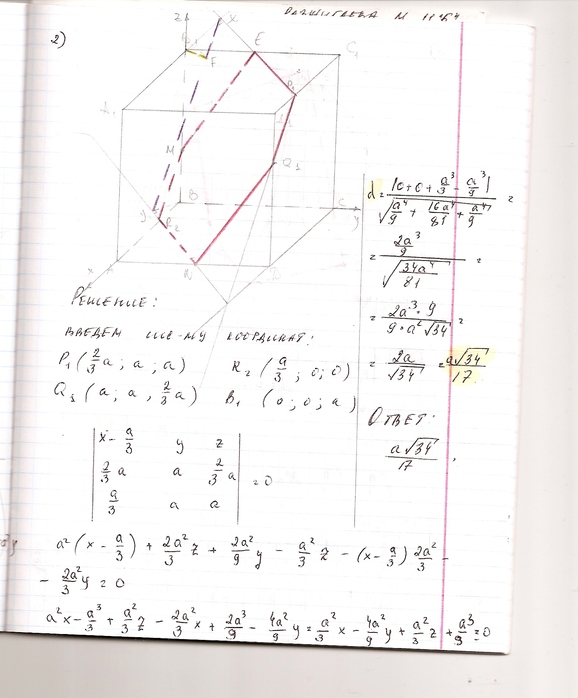 2)
z
X
B₁
F
E
C₁
P₁
A₁
M
Q₁
B
y
R₂
C
y
x
A
N
D
РЕШЕНИЕ:
ВВЕДЕМ СИС-МУ КООРДИНАТ:
P₁ (2/3 a; a; a) R₂ (a/3; 0; 0)
Q₃ (a; a, 2/3 a) B₁ (0; 0; a)
| x - a/3 y z |
| 2/3 a a 2/3 a | = 0
| a/3 a a |
a² (x - a/3) + 2a²/3 z + 2a²/9 y - a²/3 z - (x - a/3) 2a²/3 -
- 2a²/3 y = 0
a²x - a³/3 + a²/3 z - 2a²/3 x + 2a³/9 - 4a²/9 y = a²/3 x - 4a²/9 y + a²/3 z + a³/9 = 0
d = |0 + 0 + a³/3 - a³/9| / √(a⁴/9 + 16a⁴/81 + a⁴/9) =
= (2a³/9) / √(34a⁴/81) =
= 2a³·9 / 9·a²√34 =
= 2a/√34 = a√34/17
ОТВЕТ:
a√34/17.